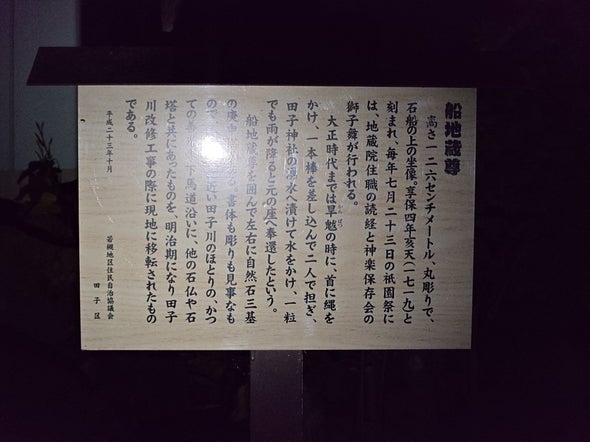 船地蔵尊
高さ一二六センチメートル、丸彫りで、
石船の上の坐像。享保四年亥天(一七一九)と
刻まれ、毎年七月二十三日の祇園祭に
は、地蔵院住職の読経と神楽保存会の
獅子舞が行われる。
大正時代までは旱魃の時に、首に縄を
かんばつ
かけ、一本棒を差し込んで二人で担ぎ、
田子神社の湧水へ漬けて水をかけ、一粒
でも雨が降ると元の座へ奉還したという。
船地蔵尊を囲んで左右に自然石三基
の庚申 書体も彫りも見事なも
ので 近い田子川のほとりの、かつ
ての 下馬道沿いに、他の石仏や石
塔と共にあったものを、明治期になり田子
川改修工事の際に現地に移転されたもの
である。
平成二十三年十月
若槻地区住民自治協議会
田子区